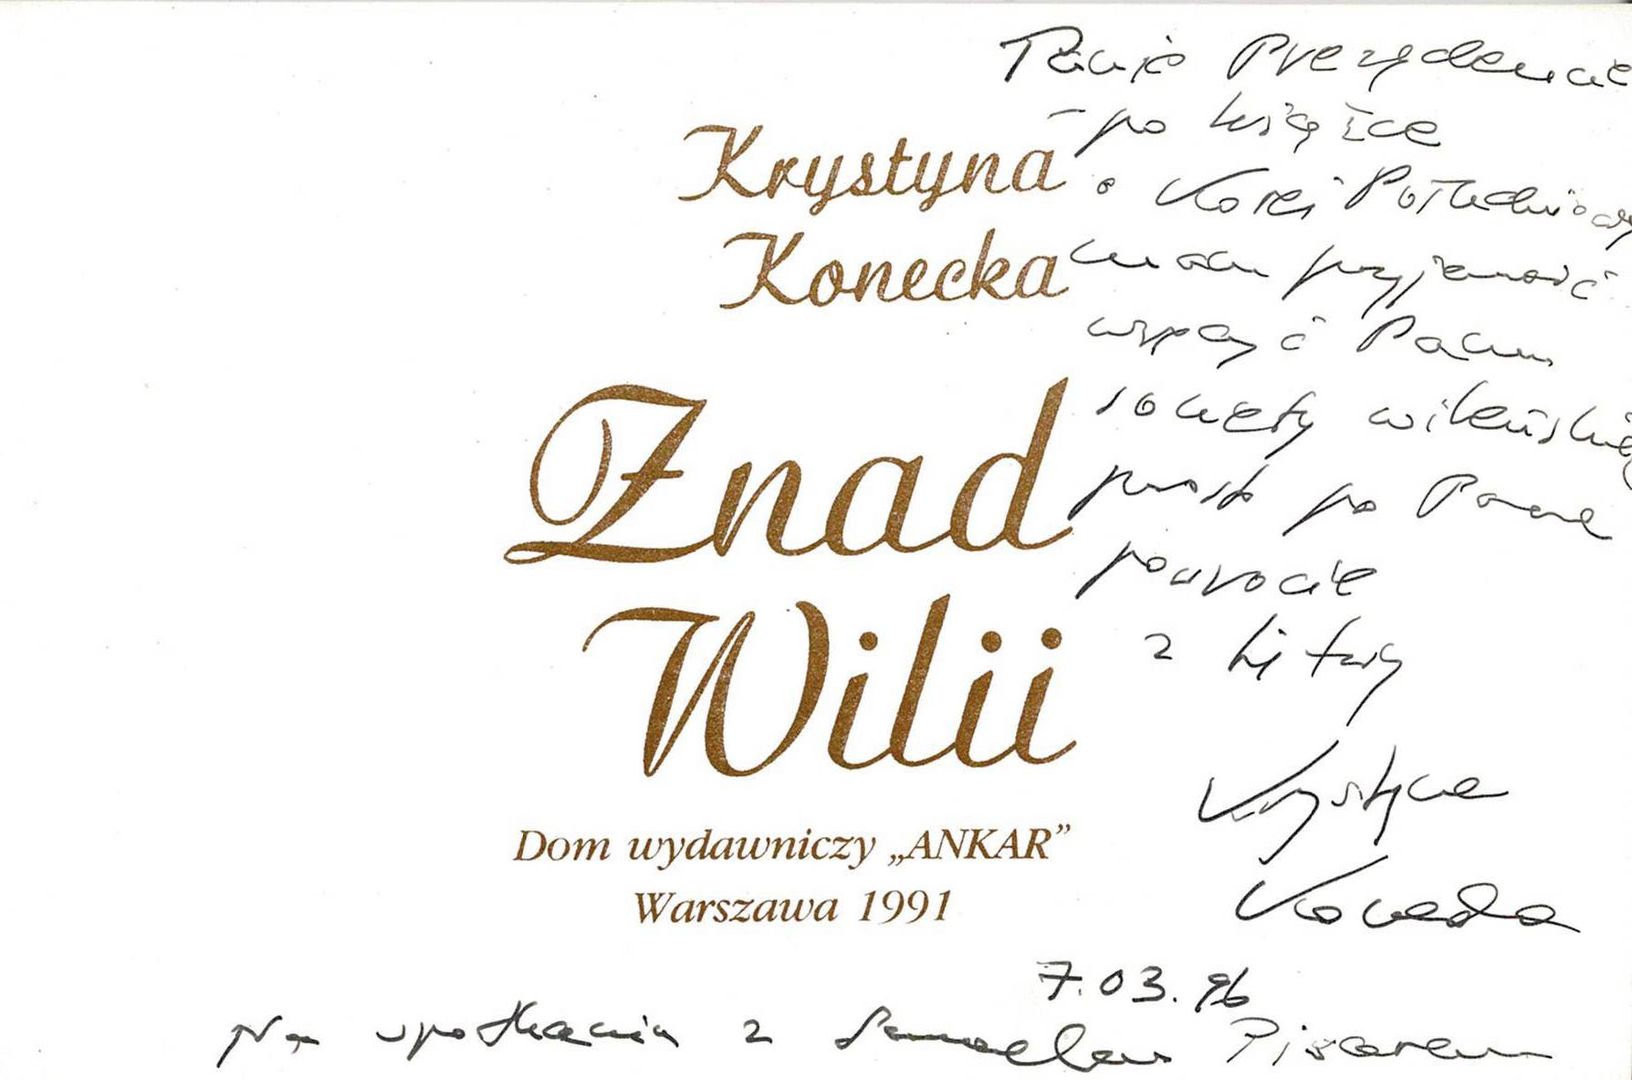 Krystyna
Konecka
Znad
Wilii
Dom wydawniczy „ANKAR”
Warszawa 1991
Panie Prezydencie
- po książce
o Korei Południowej
mam przyjemność
wręczyć Panu
sonety wileńskie
prosto po Pana
powrocie
z Litwy
Krystyna
Konecka
7.03.96
Na spotkaniu z Samuelem Pisarem